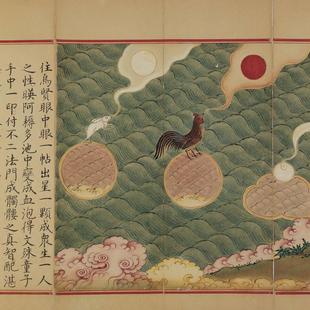 住鳥賢眼中眼一帖出星一顆成衆生一人
之性暎阿耨多池中變成血泡得文殊童子
手中一印付不二法門成髑髏之真智配湛